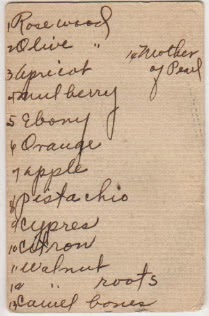 1 Rose wood
2 Olive "
3 apricot
4 mulberry
5 Ebony
6 Orange
7 apple
8 Pistachio
9 Cypres
10 Citron
11 Walnut
12 " roots
13 Camel bones
14 Mother
of Pearl